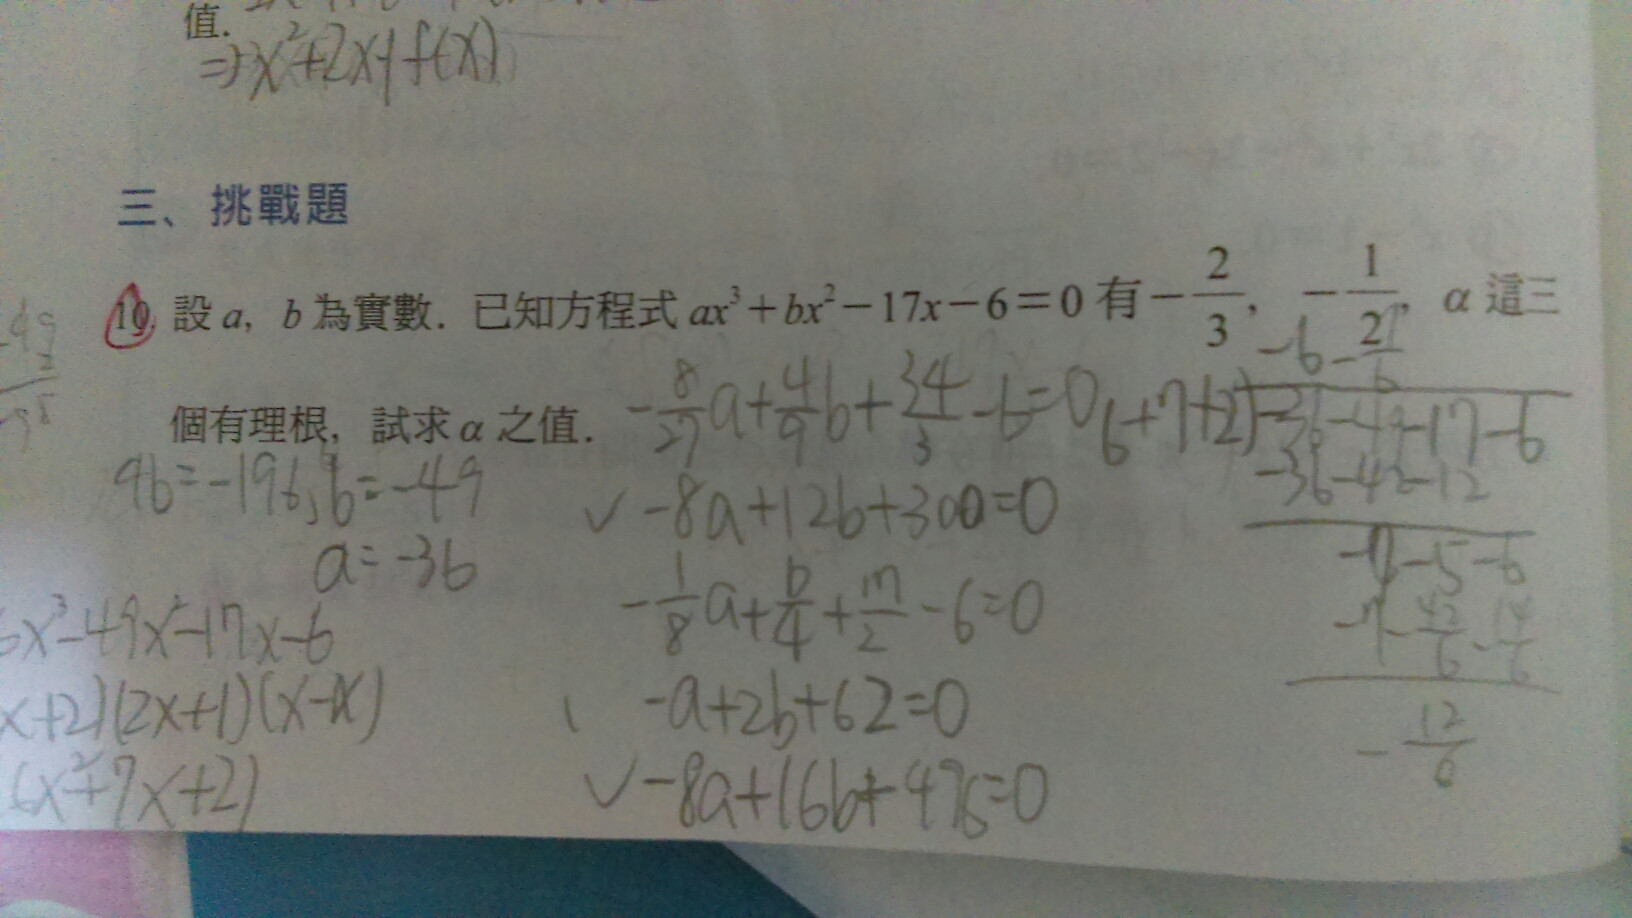 值.
⇒x²+2x+f(x)
三、挑戰題
10. 設 a, b 為實數. 已知方程式 ax³+bx²−17x−6=0 有 −2/3, −1/2, α 這三
個有理根, 試求 α 之值.
-8/27a+4/9b+34/3-6=0
-8a+12b+300=0
-1/8a+b/4+17/2-6=0
-a+2b+62=0
-8a+16b+496=0
4b=-196, b=-49
a=-36
6x³-49x²-17x-6
x+2)(2x+1)(x-α)
6x²+7x+2)
-6-7/6
6+7+2)-36-49-17-6
-36-42-12
-7-5-6
-7-42/6-14/6
-12/6